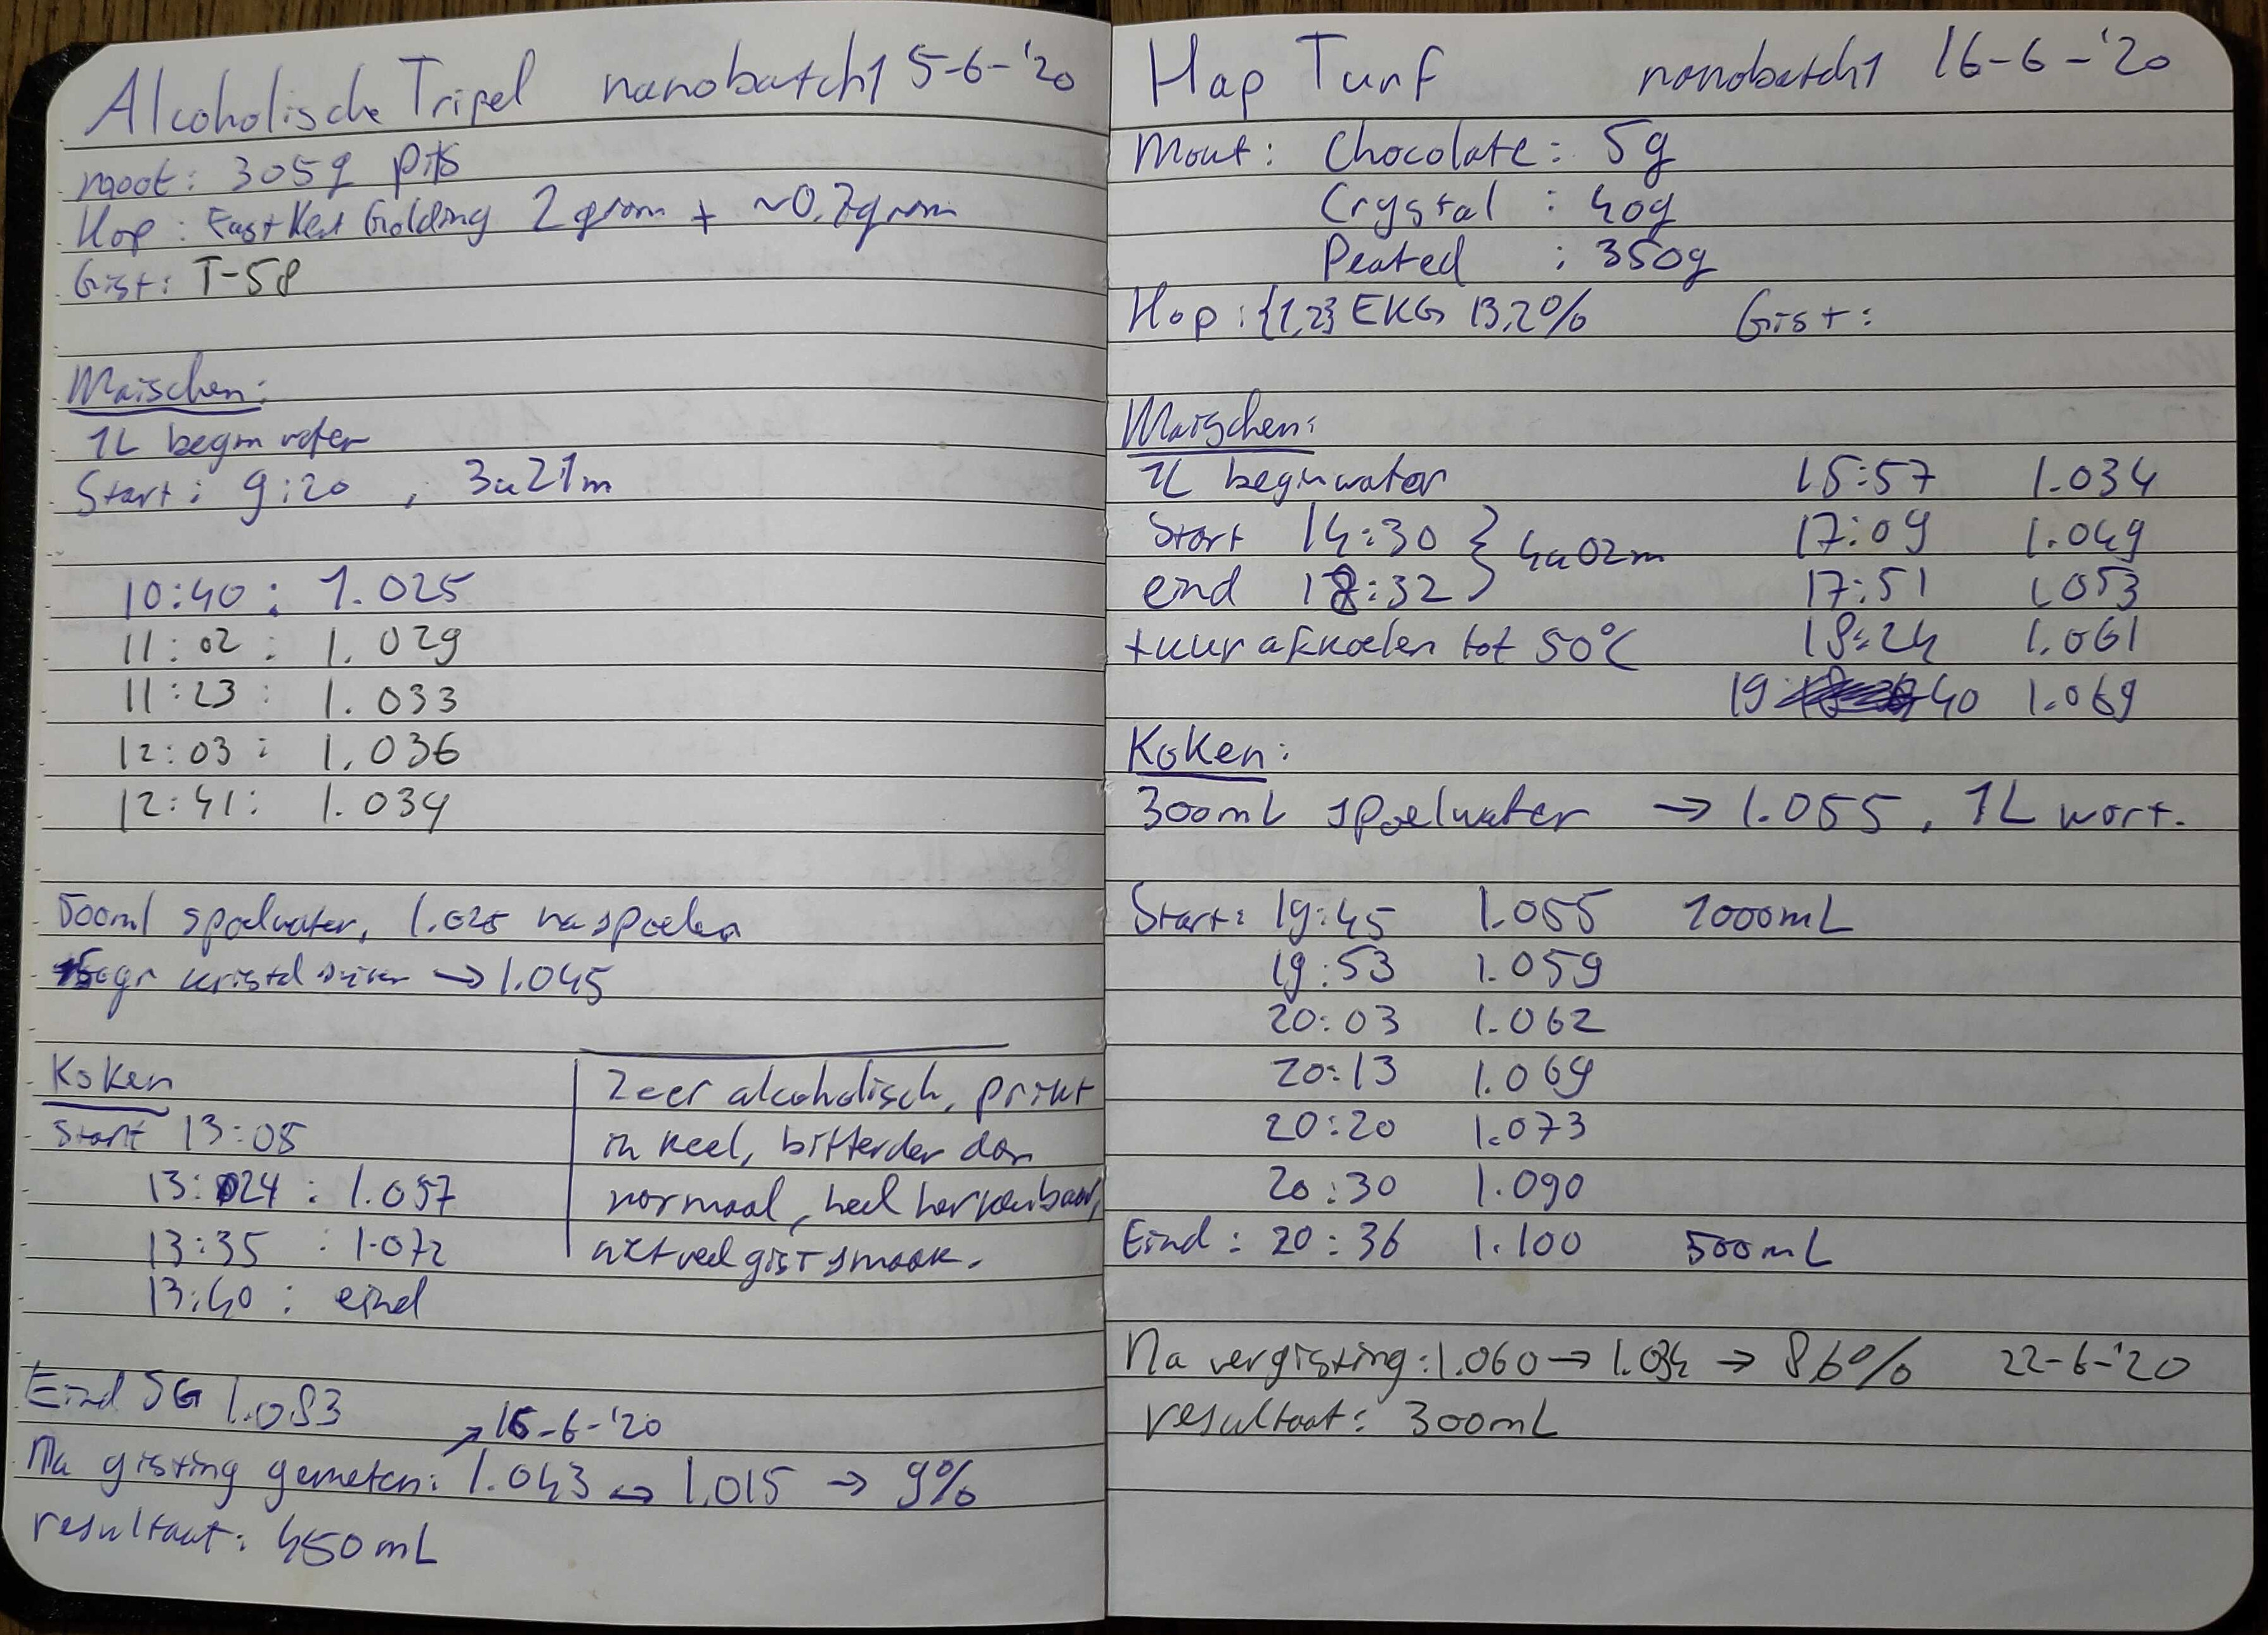 Alcoholische Tripel nanobatch1 5-6-'20
moot: 305g pils
Hop: East Kent Golding 2 gram + ~0,7gram
Gist: T-58
Maischen:
1L beginwater
Start: 9:20 , 3u21m
10:40 : 1.025
11:02 : 1.029
11:23 : 1.033
12:03 : 1.036
12:41: 1.039
500ml spoelwater, 1.025 na spoelen
gr kristalsuiker → 1.045
Koken
Start 13:05
13:24 : 1.057
13:35 : 1.072
13:40 : eind
Zeer alcoholisch, prikt
in keel, bitterder dan
normaal, heel herkenbaar,
niet veel gist smaak.
Eind SG 1.083
↗ 16-6-'20
Na gisting gemeten: 1.043 → 1.015 → 9%
resultaat: 450mL
Hap Turf nanobatch1 16-6-'20
Mout: Chocolate: 5g
Crystal : 40g
Peated : 350g
Hop: {1,2} EKG 13,2% Gist:
Maischen:
1L beginwater 15:57 1.034
Start 14:30 } 4u02m 17:09 1.049
eind 18:32 17:51 1.053
+uur afkoelen tot 50°C 18:24 1.061
19:40 1.069
Koken:
300mL spoelwater → 1.055, 1L wort.
Start: 19:45 1.055 1000mL
19:53 1.059
20:03 1.062
20:13 1.069
20:20 1.073
20:30 1.090
Eind: 20:36 1.100 500mL
Na vergisting: 1.060 → 1.034 → 8,6% 22-6-'20
resultaat: 300mL